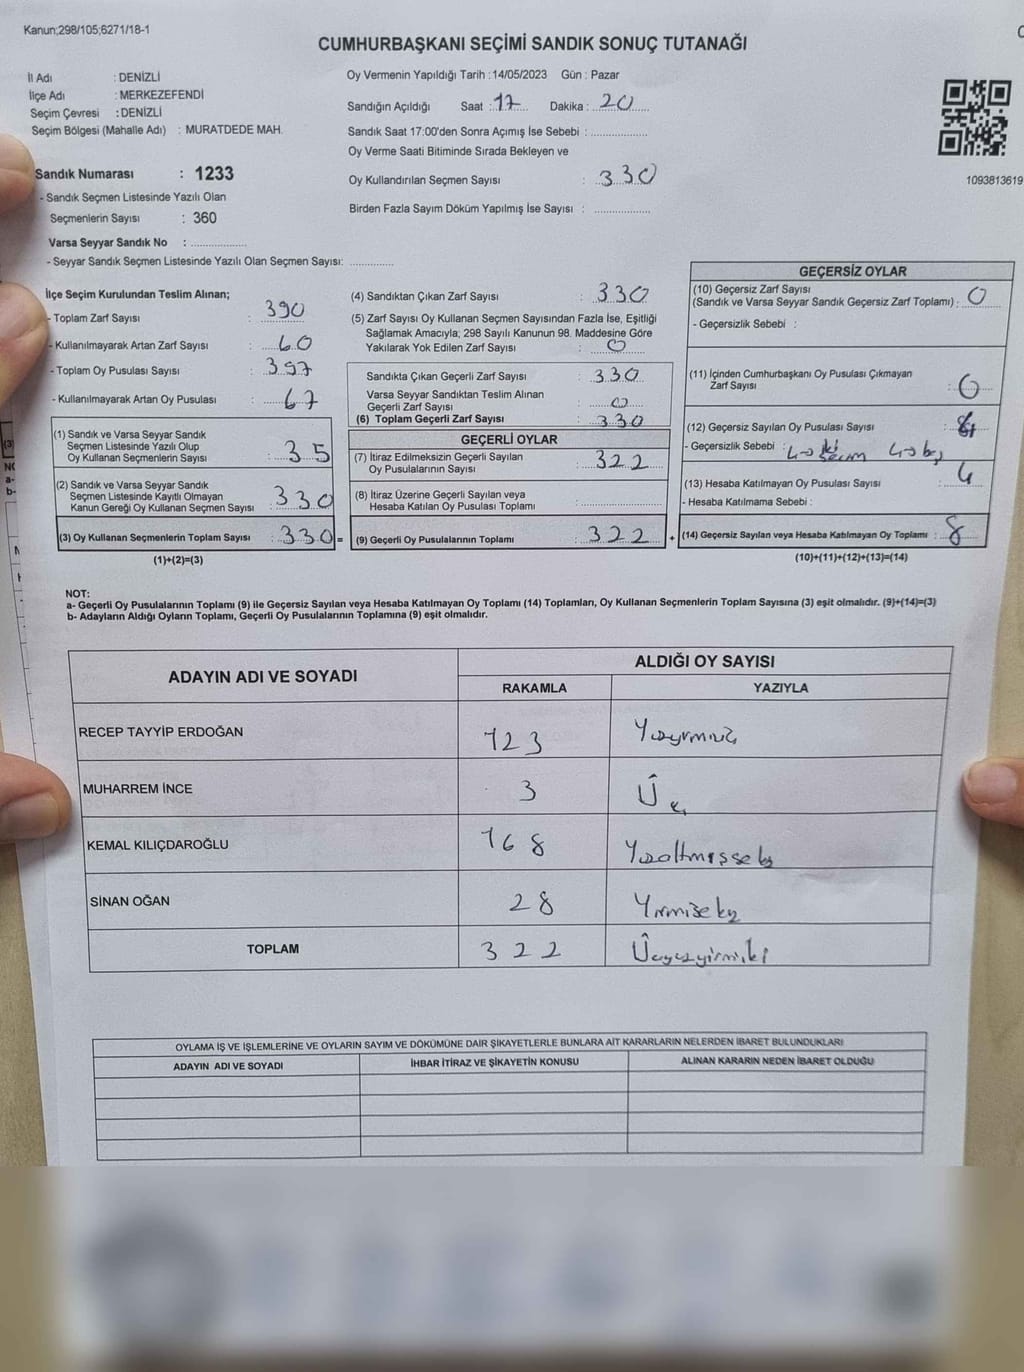 Kanun;298/105;6271/18-1
CUMHURBAŞKANI SEÇİMİ SANDIK SONUÇ TUTANAĞI
İl Adı : DENİZLİ
İlçe Adı : MERKEZEFENDİ
Seçim Çevresi : DENİZLİ
Seçim Bölgesi (Mahalle Adı) : MURATDEDE MAH.
Sandık Numarası : 1233
- Sandık Seçmen Listesinde Yazılı Olan
Seçmenlerin Sayısı : 360
Varsa Seyyar Sandık No :
- Seyyar Sandık Seçmen Listesinde Yazılı Olan Seçmen Sayısı:
Oy Vermenin Yapıldığı Tarih : 14/05/2023 Gün : Pazar
Sandığın Açıldığı Saat : 17 Dakika : 20
Sandık Saat 17:00'den Sonra Açımış İse Sebebi :
Oy Verme Saati Bitiminde Sırada Bekleyen ve
Oy Kullandırılan Seçmen Sayısı : 330
Birden Fazla Sayım Döküm Yapılmış İse Sayısı :
1093813619
İlçe Seçim Kurulundan Teslim Alınan;
- Toplam Zarf Sayısı : 390
- Kullanılmayarak Artan Zarf Sayısı : 60
- Toplam Oy Pusulası Sayısı : 397
- Kullanılmayarak Artan Oy Pusulası : 67
(1) Sandık ve Varsa Seyyar Sandık
Seçmen Listesinde Yazılı Olup
Oy Kullanan Seçmenlerin Sayısı : 35
(2) Sandık ve Varsa Seyyar Sandık
Seçmen Listesinde Kayıtlı Olmayan
Kanun Gereği Oy Kullanan Seçmen Sayısı : 330
(3) Oy Kullanan Seçmenlerin Toplam Sayısı : 330 =
(1)+(2)=(3)
(4) Sandıktan Çıkan Zarf Sayısı : 330
(5) Zarf Sayısı Oy Kullanan Seçmen Sayısından Fazla İse, Eşitliği
Sağlamak Amacıyla; 298 Sayılı Kanunun 98. Maddesine Göre
Yakılarak Yok Edilen Zarf Sayısı : 0
Sandıkta Çıkan Geçerli Zarf Sayısı : 330
Varsa Seyyar Sandıktan Teslim Alınan
Geçerli Zarf Sayısı : 0
(6) Toplam Geçerli Zarf Sayısı : 330
GEÇERLİ OYLAR
(7) İtiraz Edilmeksizin Geçerli Sayılan
Oy Pusulalarının Sayısı : 322
(8) İtiraz Üzerine Geçerli Sayılan veya
Hesaba Katılan Oy Pusulası Toplamı :
(9) Geçerli Oy Pusulalarının Toplamı : 322 +
GEÇERSİZ OYLAR
(10) Geçersiz Zarf Sayısı
(Sandık ve Varsa Seyyar Sandık Geçersiz Zarf Toplamı) : 0
- Geçersizlik Sebebi :
(11) İçinden Cumhurbaşkanı Oy Pusulası Çıkmayan
Zarf Sayısı : 0
(12) Geçersiz Sayılan Oy Pusulası Sayısı :
- Geçersizlik Sebebi : 4→ iki seçim 4→ boş
(13) Hesaba Katılmayan Oy Pusulası Sayısı : 4
- Hesaba Katılmama Sebebi :
(14) Geçersiz Sayılan veya Hesaba Katılmayan Oy Toplamı : 8
(10)+(11)+(12)+(13)=(14)
NOT:
a- Geçerli Oy Pusulalarının Toplamı (9) ile Geçersiz Sayılan veya Hesaba Katılmayan Oy Toplamı (14) Toplamları, Oy Kullanan Seçmenlerin Toplam Sayısına (3) eşit olmalıdır. (9)+(14)=(3)
b- Adayların Aldığı Oyların Toplamı, Geçerli Oy Pusulalarının Toplamına (9) eşit olmalıdır.
ADAYIN ADI VE SOYADI ALDIĞI OY SAYISI
RAKAMLA YAZIYLA
RECEP TAYYİP ERDOĞAN 123 Yüzyirmiüç
MUHARREM İNCE 3 Üç
KEMAL KILIÇDAROĞLU 168 Yüzaltmışsekiz
SİNAN OĞAN 28 Yirmisekiz
TOPLAM 322 Üçyüzyirmiiki
OYLAMA İŞ VE İŞLEMLERİNE VE OYLARIN SAYIM VE DÖKÜMÜNE DAİR ŞİKAYETLERLE BUNLARA AİT KARARLARIN NELERDEN İBARET BULUNDUKLARI
ADAYIN ADI VE SOYADI İHBAR İTİRAZ VE ŞİKAYETİN KONUSU ALINAN KARARIN NEDEN İBARET OLDUĞU